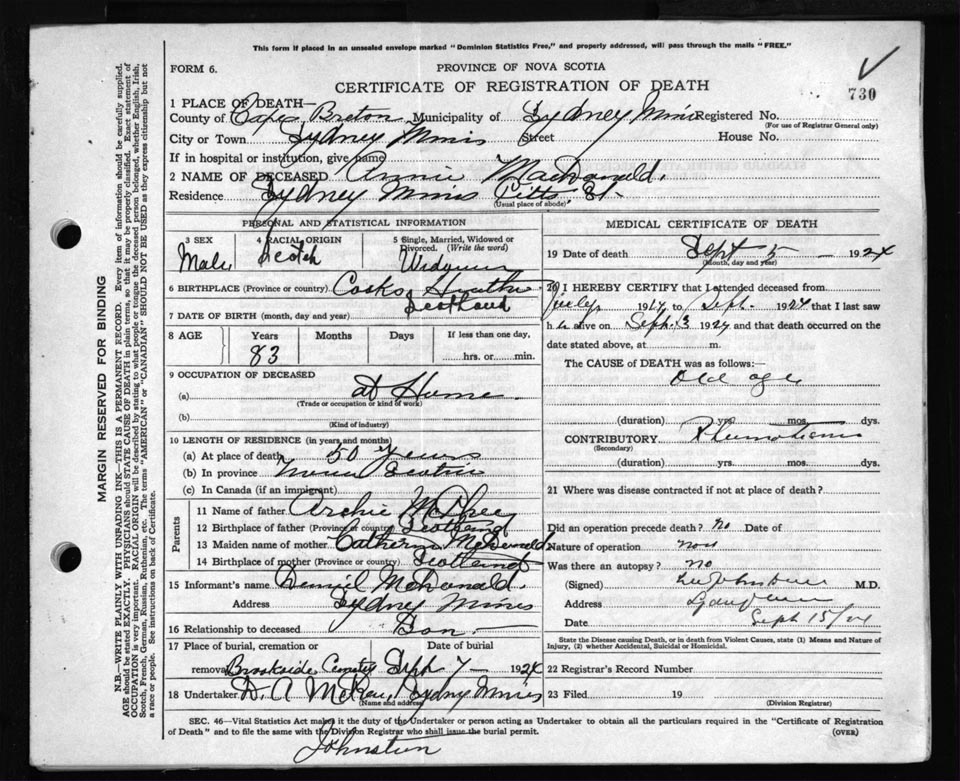 This form if placed in an unsealed envelope marked "Dominion Statistics Free," and properly addressed, will pass through the mails "FREE."
FORM 6.
PROVINCE OF NOVA SCOTIA
CERTIFICATE OF REGISTRATION OF DEATH
730
1 PLACE OF DEATH—
County of Cape Breton Municipality of Sydney Mines Registered No.
(For use of Registrar General only)
City or Town Sydney Mines Street House No.
If in hospital or institution, give name
2 NAME OF DECEASED Annie MacDonald.
Residence Sydney Mines Pitts St.
(Usual place of abode)
PERSONAL AND STATISTICAL INFORMATION
3 SEX
Male
4 RACIAL ORIGIN
Scotch
5 Single, Married, Widowed or Divorced. (Write the word)
6 BIRTHPLACE (Province or country)
Scotland
7 DATE OF BIRTH (month, day and year)
8 AGE Years Months Days If less than one day,
83 hrs. or min.
9 OCCUPATION OF DECEASED
(a) at Home
(Trade or occupation or kind of work)
(b)
(Kind of industry)
10 LENGTH OF RESIDENCE (in years and months)
(a) At place of death 50 years
(b) In province Nova Scotia
(c) In Canada (if an immigrant)
Parents
11 Name of father Archie McPhee
12 Birthplace of father (Province or country) Scotland
13 Maiden name of mother Catherine McDonald
14 Birthplace of mother (Province or country) Scotland
15 Informant's name McDonald.
Address Sydney Mines
16 Relationship to deceased Son
17 Place of burial, cremation or removal Date of burial
Brookside Cemetery Sept 7 — 1924
18 Undertaker D. A McRae, Sydney Mines
(Name and address)
MEDICAL CERTIFICATE OF DEATH
19 Date of death Sept 5 — 1924
(Month, day and year)
20 I HEREBY CERTIFY that I attended deceased from
July 1924 to Sept. 1924 that I last saw
h alive on Sept. 3 1924 and that death occurred on the
date stated above, at m.
The CAUSE OF DEATH was as follows:
Old age
(duration) yrs. mos. dys.
CONTRIBUTORY Rheumatism
(Secondary)
(duration) yrs. mos. dys.
21 Where was disease contracted if not at place of death?
Did an operation precede death? no Date of
Nature of operation
Was there an autopsy? no
(Signed) M.D.
Address
Date Sept 15/24
State the Disease causing Death, or in death from Violent Causes, state (1) Means and Nature of
Injury, (2) whether Accidental, Suicidal or Homicidal.
22 Registrar's Record Number
23 Filed 19
(Division Registrar)
SEC. 46—Vital Statistics Act makes it the duty of the Undertaker or person acting as Undertaker to obtain all the particulars required in the "Certificate of Registration
of Death" and to file the same with the Division Registrar who shall issue the burial permit.
(OVER)
Johnston
MARGIN RESERVED FOR BINDING
N.B.—WRITE PLAINLY WITH UNFADING INK—THIS IS A PERMANENT RECORD. Every item of information should be carefully supplied.
AGE should be stated EXACTLY. PHYSICIANS should STATE CAUSE OF DEATH in plain terms, so that it may be properly classified. Exact statement of
OCCUPATION is very important. RACIAL ORIGIN will be described by stating to what people or tongue the deceased person belonged, whether English, Irish,
Scotch, French, German, Russian, Ruthenian, etc. The terms "AMERICAN" or "CANADIAN" SHOULD NOT BE USED as they express citizenship but not
a race or people. See instructions on back of Certificate.